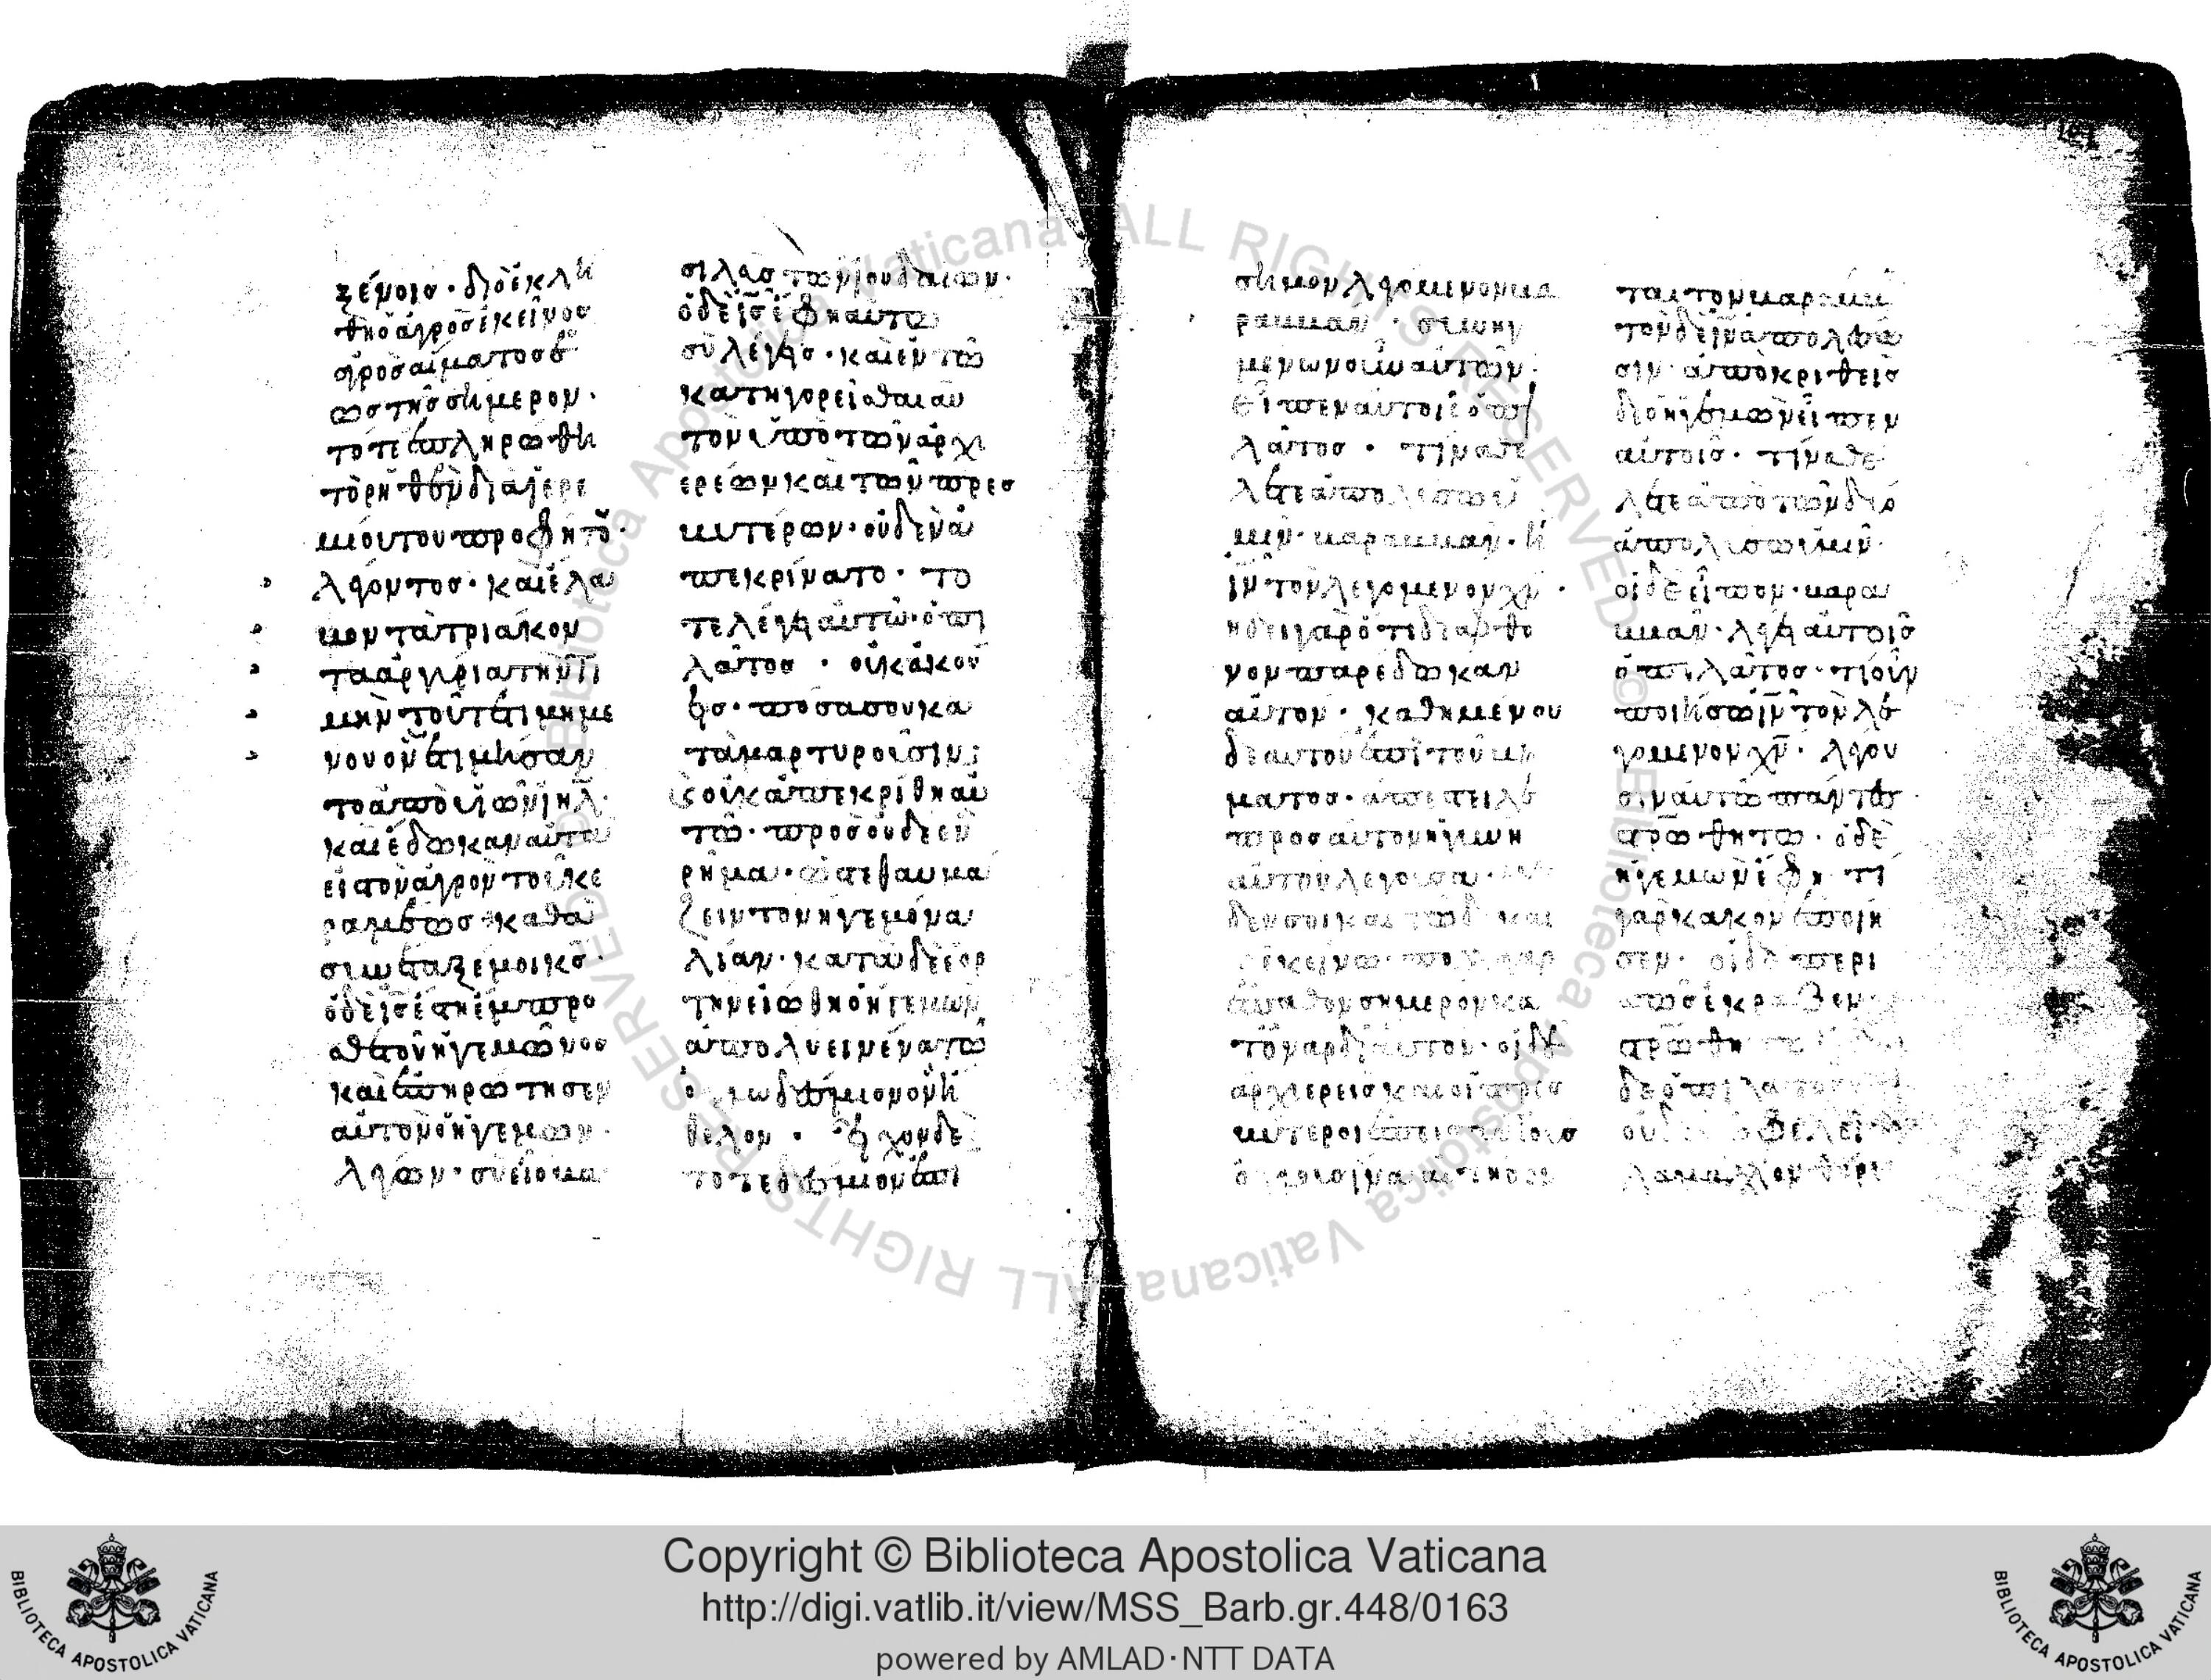 ξένοις· διὸ ἐκλή
θη ὁ ἀγρὸς ἐκεῖνος
ἀγρὸς αἵματος ἕ
ως τῆς σήμερον·
τότε ἐπληρώθη
τὸ ῥηθὲν διὰ ἱερε
μίου τοῦ προφήτου·
λέγοντος· καὶ ἔλα
βον τὰ τριάκον
τα ἀργύρια τὴν τι
μὴν τοῦ τετιμημέ
νου ὃν ἐτιμήσαν
το ἀπὸ υἱῶν ιηλ·
καὶ ἔδωκαν αὐτὰ
εἰς τὸν ἀγρὸν τοῦ κε
ραμέως καθὰ
συνέταξέ μοι κς·
ὁ δὲ ις ἔστη ἔμπρο
σθεν τοῦ ἡγεμῶνος
καὶ ἐπηρώτησεν
αὐτὸν ὁ ἡγεμὼν
λέγων· σὺ εἶ ὁ βα
σιλεὺς τῶν ἰουδαίων·
ὁ δὲ ις ἔφη αὐτῶ
σὺ λέγεις· καὶ ἐν τῶ
κατηγορεῖσθαι αὐ
τὸν ὑπὸ τῶν ἀρχι
ερέων καὶ τῶν πρεσ
βυτέρων· οὐδὲν ἀ
πεκρίνατο· τό
τε λέγει αὐτῶ ὁ πι
λάτος· οὐκ ἀκού
εις· πόσα σου κα
ταμαρτυροῦσιν;
καὶ οὐκ ἀπεκρίθη αὐ
τῶ· πρὸς οὐδὲ ἓν
ῥῆμα· ὥστε θαυμά
ζειν τὸν ἡγεμόνα
λίαν· κατὰ δὲ ἑορ
τὴν εἰώθη ὁ ἡγεμὼν
ἀπολύειν ἕνα τῶ
ὄχλω δέσμιον ὃν ἤ
θελον· εἶχον δὲ
τότε δέσμιον ἐπί
σημον λεγόμενον βα
ραββὰν· συνηγ
μένων οὖν αὐτῶν·
εἶπεν αὐτοῖς ὁ πι
λάτος· τίνα θέ
λετε ἀπολύσω ὑ
μῖν· βαραββὰν· ἢ
ιν τὸν λεγόμενον χν·
ἤδει γὰρ ὅτι διὰ φθό
νον παρέδωκαν
αὐτόν· καθημένου
δὲ αὐτοῦ ἐπὶ τοῦ βή
ματος· ἀπέστειλε
πρὸς αὐτὸν ἡ γυνὴ
αὐτοῦ λέγουσα·
δὲν σοὶ καὶ τῶ δικαί
ἐκείνω· πολλὰ γὰρ
ἔπαθον σήμερον κα
τ᾽ ὄναρ δι᾽ αὐτόν· οἱ δὲ
ἀρχιερεῖς καὶ οἱ πρεσ
βύτεροι ἔπεισαν τοὺς
ὄχλους ἵνα αἰτήσων
ται τὸν βαραββὰν
τὸν δὲ ιν ἀπολέσω
σιν· ἀποκριθεὶς
δὲ ὁ ἡγεμὼν εἶπεν
αὐτοῖς· τίνα θέ
λετε ἀπὸ τῶν δύο
ἀπολύσω ὑμῖν·
οἱ δὲ εἶπον· βαρα
ββὰν· λέγει αὐτοῖς
ὁ πιλάτος· τί οὖν
ποιήσω ιν τὸν λε
γόμενον χν· λέγου
σιν αὐτῶ πάντες·
στρωθήτω· ὁ δὲ
ἡγεμὼν ἔφη τί
γὰρ κακὸν ἐποίη
σεν· οἱ δὲ περι
σσῶς ἔκραζον
στρωθήτω
δὲ ὁ πιλάτος ὅτι
οὐδὲν ὠφελεῖ
λὰ μᾶλλον θόρυ
Copyright © Biblioteca Apostolica Vaticana
http://digi.vatlib.it/view/MSS_Barb.gr.448/0163
powered by AMLAD·NTT DATA
BIBLIOTECA APOSTOLICA VATICANA
BIBLIOTECA APOSTOLICA VATICANA